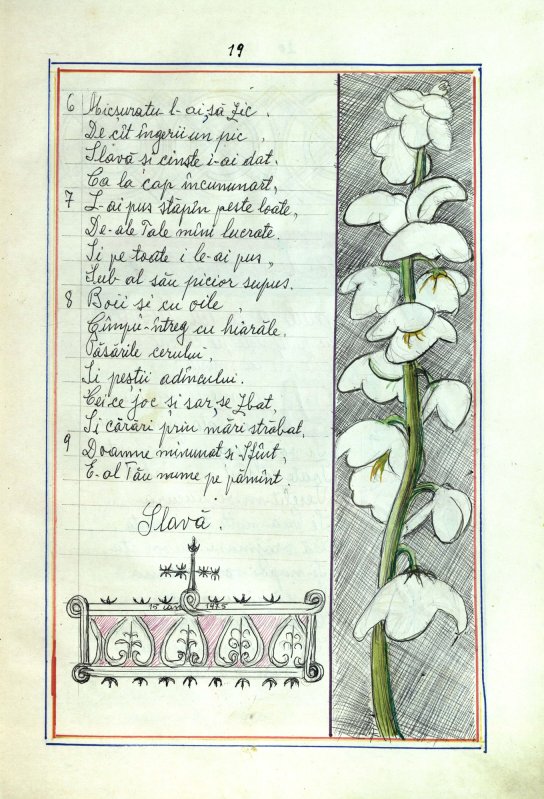 19
6 Micșuratu-l-ai, să zic.
De cît îngerii un pic,
Slavă și cinste i-ai dat.
Ca la cap încununat,
7 L-ai pus stăpîn peste toate,
De-ale Tale mîni lucrate.
Și pe toate i le-ai pus,
Sub al său picior supus.
8 Boii și cu oile,
Cîmpu-ntreg cu hiarăle.
Păsările cerului,
Și peștii adîncului.
Cei ce joc și sar, se zbat,
Și cărări prin mări străbat,
9 Doamne minunat și Sfînt,
E-al Tău nume pe pămînt.
Slavă.
15 ian 1975